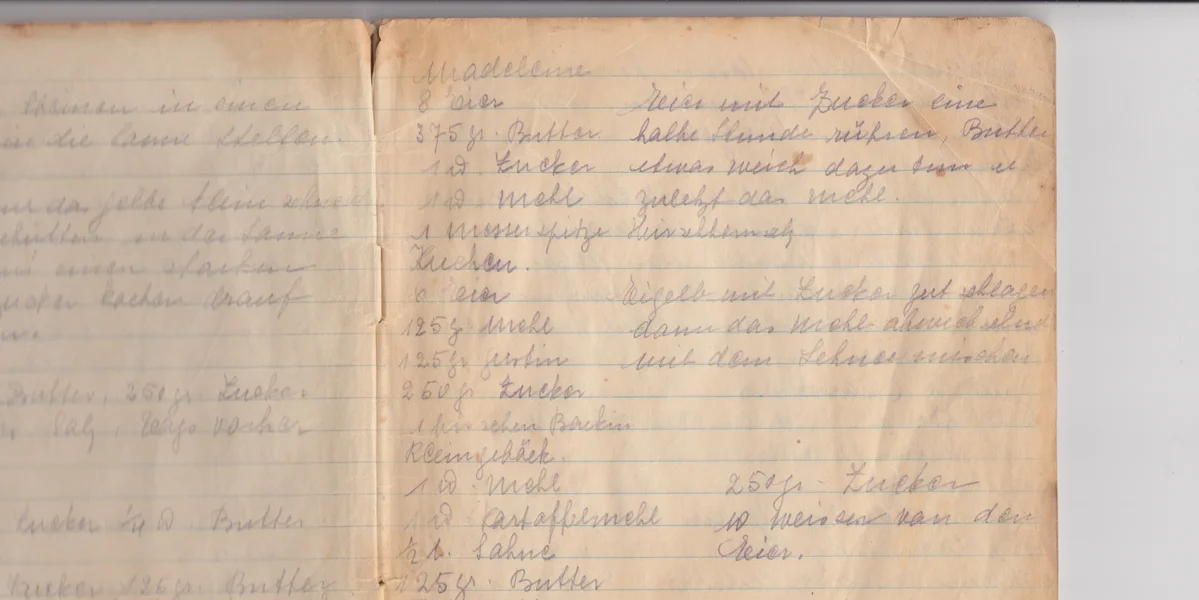 steinen in einen
in die Sonne stellen.
das gelbe klein
schütten in der Sonne
einen starken
Zucker kochen drauf
Butter, 250 gr. Zucker
Salz, Teig vorher
Zucker ¼ ℔ Butter
Zucker 125 gr. Butter
Madeleine
8 Eier Eier mit Zucker eine
375 gr. Butter halbe Stunde rühren, Butter
1 ℔ Zucker etwas weich dazu tun u
1 ℔ Mehl zuletzt das Mehl.
1 Messerspitze Hirschhornsalz
Kuchen.
6 Eier Eigelb mit Zucker gut schlagen
125 gr. Mehl dann das Mehl abwechselnd
125 gr Gustin mit dem Schnee mischen
250 gr. Zucker
1 bisschen Backin
Kleingebäck.
1 ℔. Mehl 250 gr. Zucker
1 ℔ Kartoffelmehl 10 Weisses von den
½ l. Sahne Eier.
125 gr. Butter